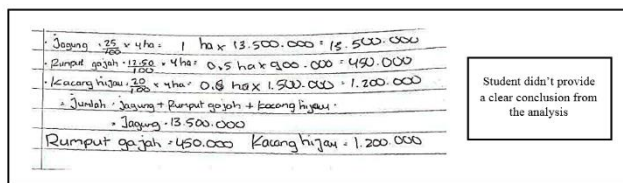 · Jagung · 25/100 x 4ha = 1 ha x 13.500.000 = 13.500.000
· Rumput gajah · 12.50/100 x 4ha = 0,5 ha x 900.000 = 450.000
· Kacang hijau · 20/100 x 4ha = 0,8 ha x 1.500.000 = 1.200.000
= Jumlah = Jagung + Rumput gajah + kacang hijau ·
= Jagung = 13.500.000
Rumput gajah = 450.000 Kacang hijau = 1.200.000
Student didn't provide
a clear conclusion from
the analysis